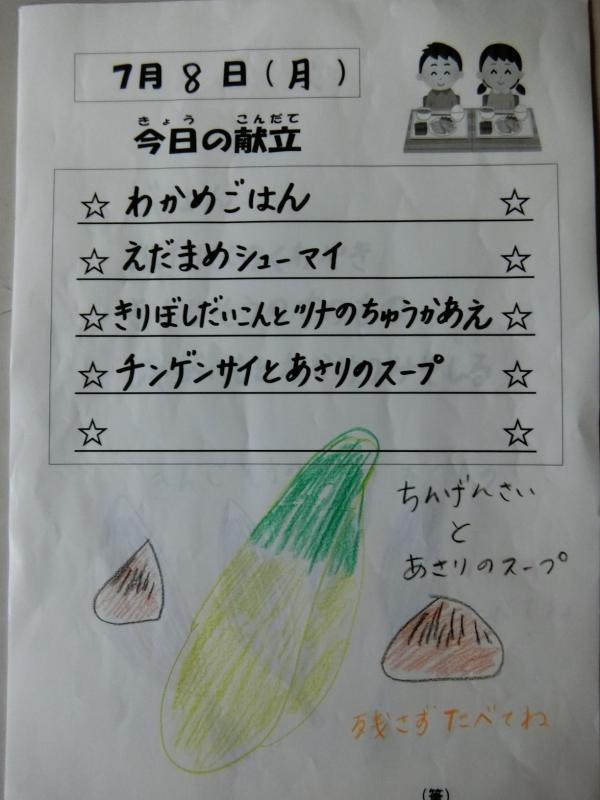 7月8日(月)
きょう こんだて
今日の献立
☆ わかめごはん ☆
☆ えだまめシューマイ ☆
☆ きりぼしだいこんとツナのちゅうかあえ ☆
☆ チンゲンサイとあさりのスープ ☆
☆ ☆
ちんげんさい
と
あさりのスープ
残さずたべてね